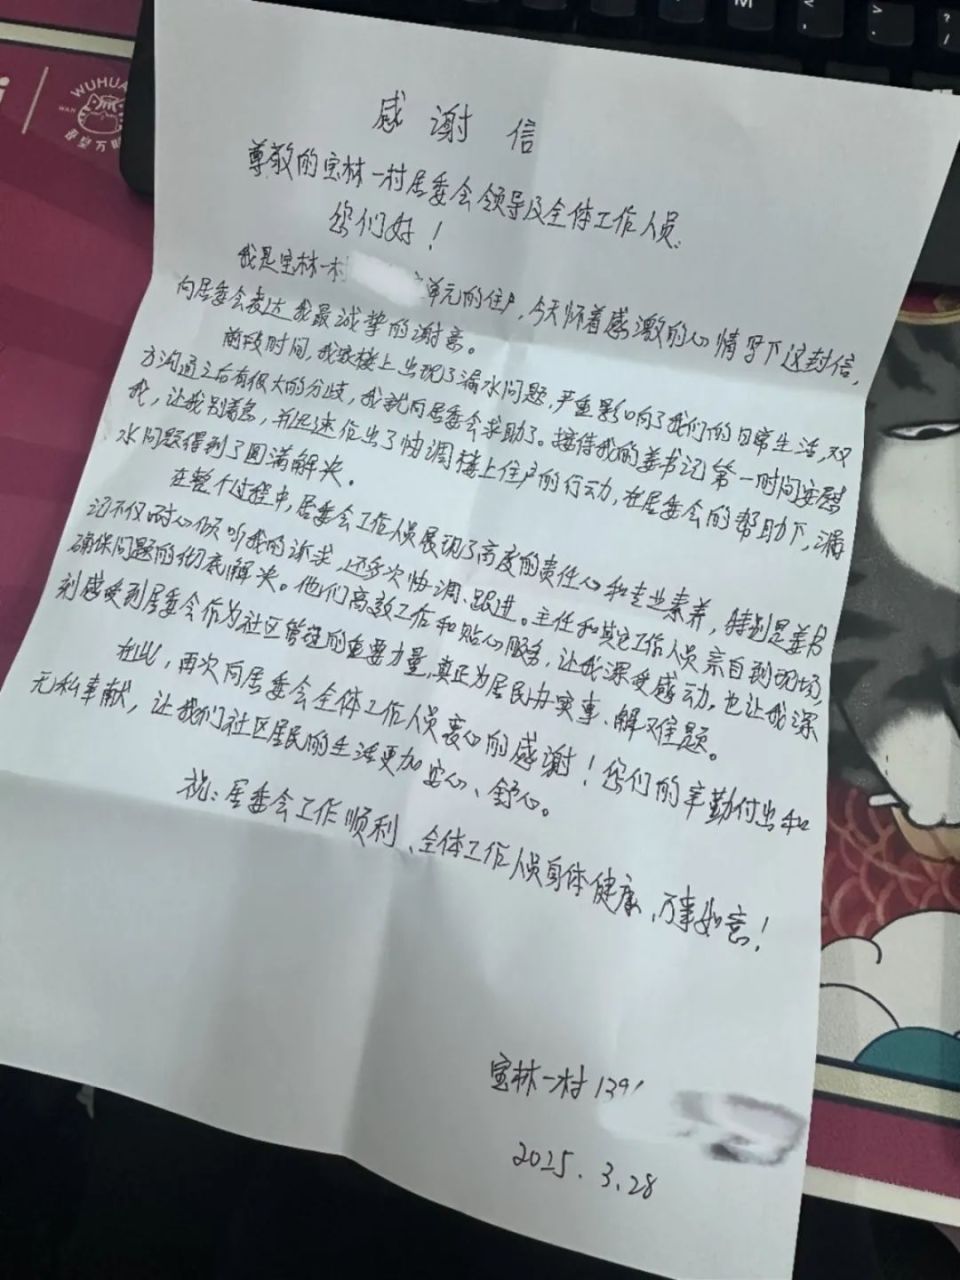 感谢信
尊敬的宝林一村居委会领导及全体工作人员:
您们好!
我是宝林一村 单元的住户,今天怀着感激的心情写下这封信,
向居委会表达我最诚挚的谢意。
前段时间,我家楼上出现了漏水问题,严重影响了我们的日常生活,双
方沟通之后有很大的分歧,我就向居委会求助了。接待我的姜书记第一时间安慰
我,让我别着急,并迅速作出了协调楼上住户的行动,在居委会的帮助下,漏
水问题得到了圆满解决。
在整个过程中,居委会工作人员展现了高度的责任心和专业素养,特别是姜书
记不仅耐心倾听我的诉求,还多次协调、跟进。主任和其它工作人员亲自到现场,
确保问题的彻底解决。他们高效工作和贴心服务,让我深受感动,也让我深
刻感受到居委会作为社区管理的重要力量,真正为居民办实事、解难题。
在此,再次向居委会全体工作人员衷心的感谢!您们的辛勤付出和
无私奉献,让我们社区居民的生活更加安心、舒心。
祝:居委会工作顺利、全体工作人员身体健康,万事如意!
宝林一村139
2025.3.28
WUHUA
WAN
吾皇万睡
M